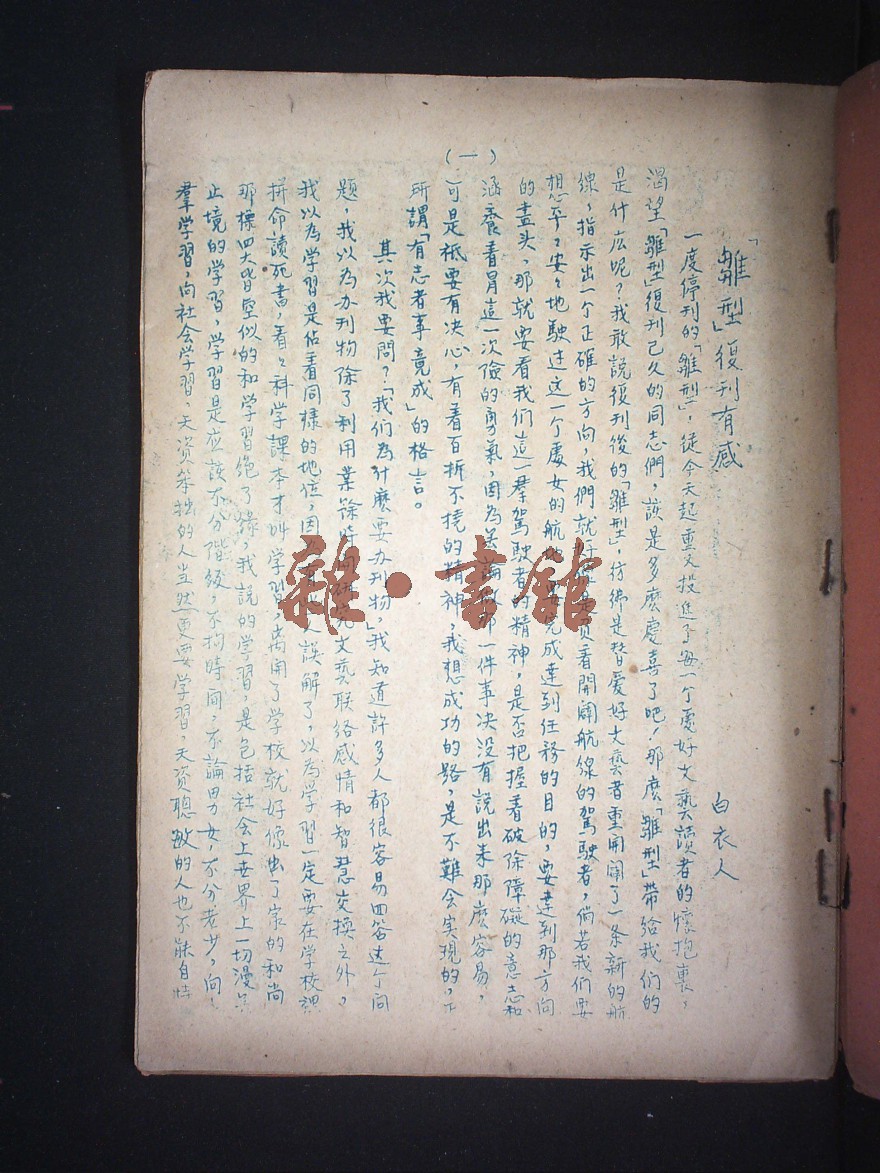 「雛型」復刋有感
白衣人
一度停刋的「雛型」，徒今天起重又投進了每一个愛好文藝讀者的懷抱裏，
渴望「雛型」復刋已久的同志們，該是多麽慶喜了吧！那麽「雛型」帶給我们的
是什庅呢？我敢說復刋後的「雛型」，彷彿是替愛好文藝者重開闢了一条新的航
線，指示出一个正確的方向，我們就好 負着開闢航線的駕駛者，倘若我们要
想平々安々地駛过这一个處女的航 完成達到任務的目的，要達到那方向
的盡头，那就要看我们這一羣駕駛者的精神，是否把握着破除障礙的意志和
涵養着冒這一次險的勇氣，因為 論 那一件事决没有説出来那麽容易，
可是祗要有决心，有着百折不撓的精神，我想成功的路，是不難会实現的，
所謂「有志者事竟成」的格言。
其次我要問？「我们為什麽要办刋物」，我知道許多人都很容易回答这个问
題，我以為办刋物除了利用業餘時间研究文藝联络感情和智慧交換之外，
我以為学習是佔着同樣的地位，因 人誤解了，以為学習一定要在学校裡
拼命讀死書，看々科学課本才叫学習，离開了学校就好像出了家的和尚
那樣四大皆空似的和学習绝了緣，我説的学習，是包括社会上世界上一切漫無
止境的学習，学習是应該不分階级，不拘時间，不論男女，不分老少，向
羣学習，向社会学習，天资笨拙的人当然更要学習，天资聰敏的人也不能自恃
（一）
雜·書館